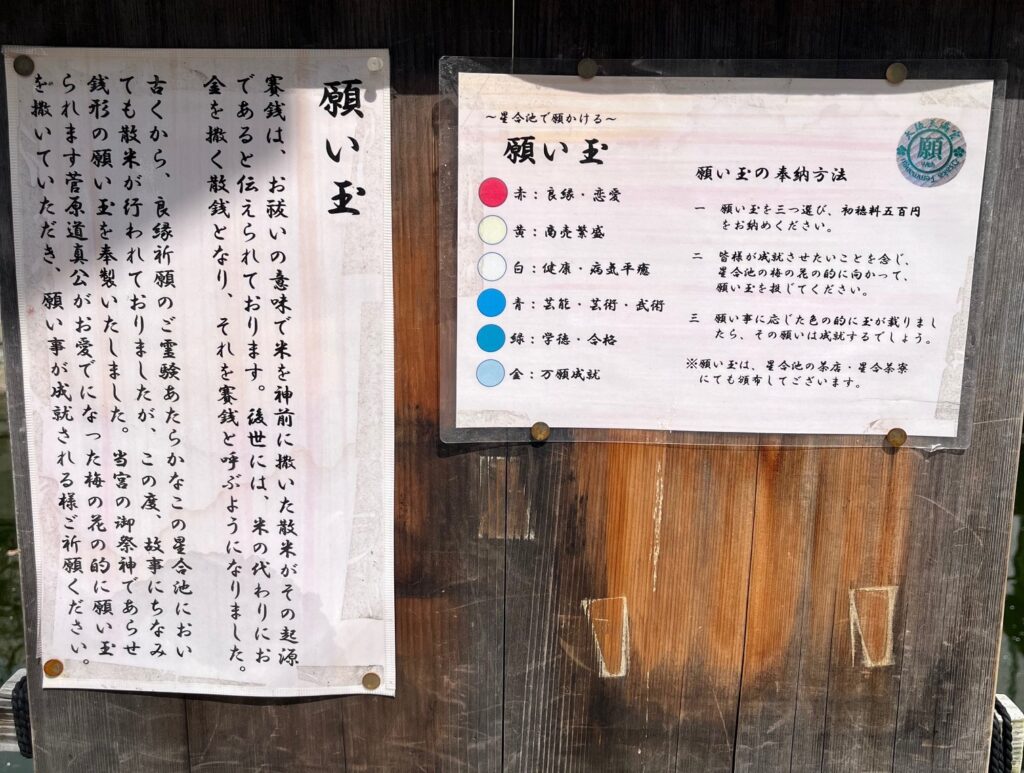 願い玉
賽銭は、お祓いの意味で米を神前に撒いた散米がその起源
であると伝えられております。後世には、米の代わりにお
金を撒く散銭となり、それを賽銭と呼ぶようになりました。
古くから、良縁祈願のご霊験あたらかなこの星合池におい
ても散米が行われておりましたが、この度、故事にちなみ
銭形の願い玉を奉製いたしました。当宮の御祭神であらせ
られます菅原道真公がお愛でになった梅の花の的に願い玉
を撒いていただき、願い事が成就される様ご祈願ください。
～星合池で願かける～
願い玉
赤：良縁・恋愛
黄：商売繁盛
白：健康・病気平癒
青：芸能・芸術・武術
緑：学徳・合格
金：万願成就
大阪天満宮
願
Osaka Tenmangu
願い玉の奉納方法
一 願い玉を三つ選び、初穂料五百円
をお納めください。
二 皆様が成就させたいことを念じ、
星合池の梅の花の的に向かって、
願い玉を投じてください。
三 願い事に応じた色の的に玉が載りまし
たら、その願いは成就するでしょう。
※願い玉は、星合池の茶店・星合茶寮
にても頒布してございます。